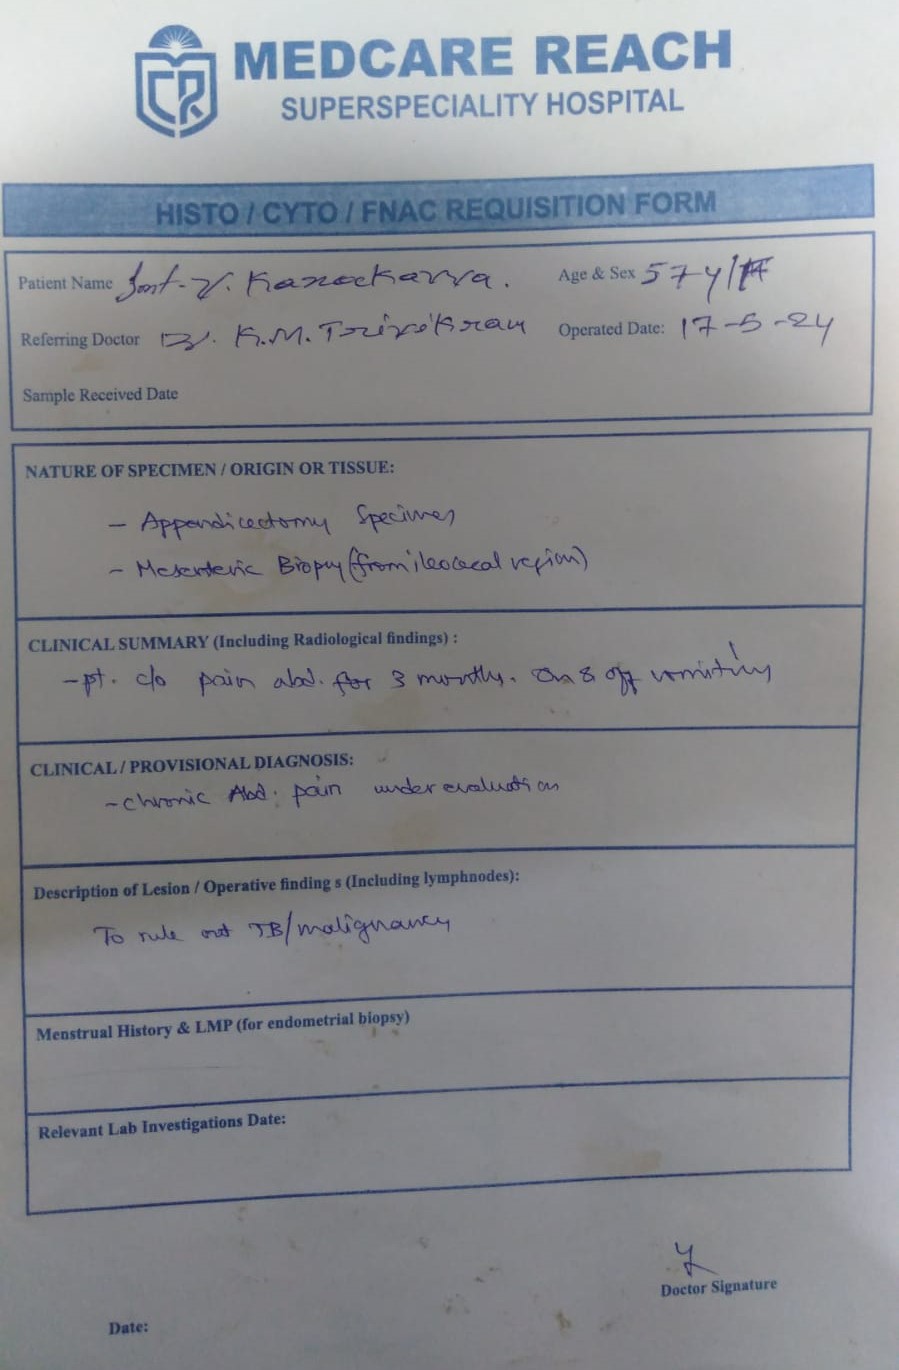 MEDCARE REACH
SUPERSPECIALITY HOSPITAL
HISTO / CYTO / FNAC REQUISITION FORM
Patient Name Smt. V. Age & Sex 57y/F
Referring Doctor Dr. K.M. Trivikram Operated Date: 17-5-24
Sample Received Date
NATURE OF SPECIMEN / ORIGIN OR TISSUE:
- Appendicectomy Specimen
- Mesenteric Biopsy (from ileocecal region)
CLINICAL SUMMARY (Including Radiological findings) :
- pt. c/o pain abd. for 3 months. on & off vomiting
CLINICAL / PROVISIONAL DIAGNOSIS:
- chronic Abd. pain under evaluation
Description of Lesion / Operative finding s (Including lymphnodes):
To rule out TB/malignancy
Menstrual History & LMP (for endometrial biopsy)
Relevant Lab Investigations Date:
Doctor Signature
Date: